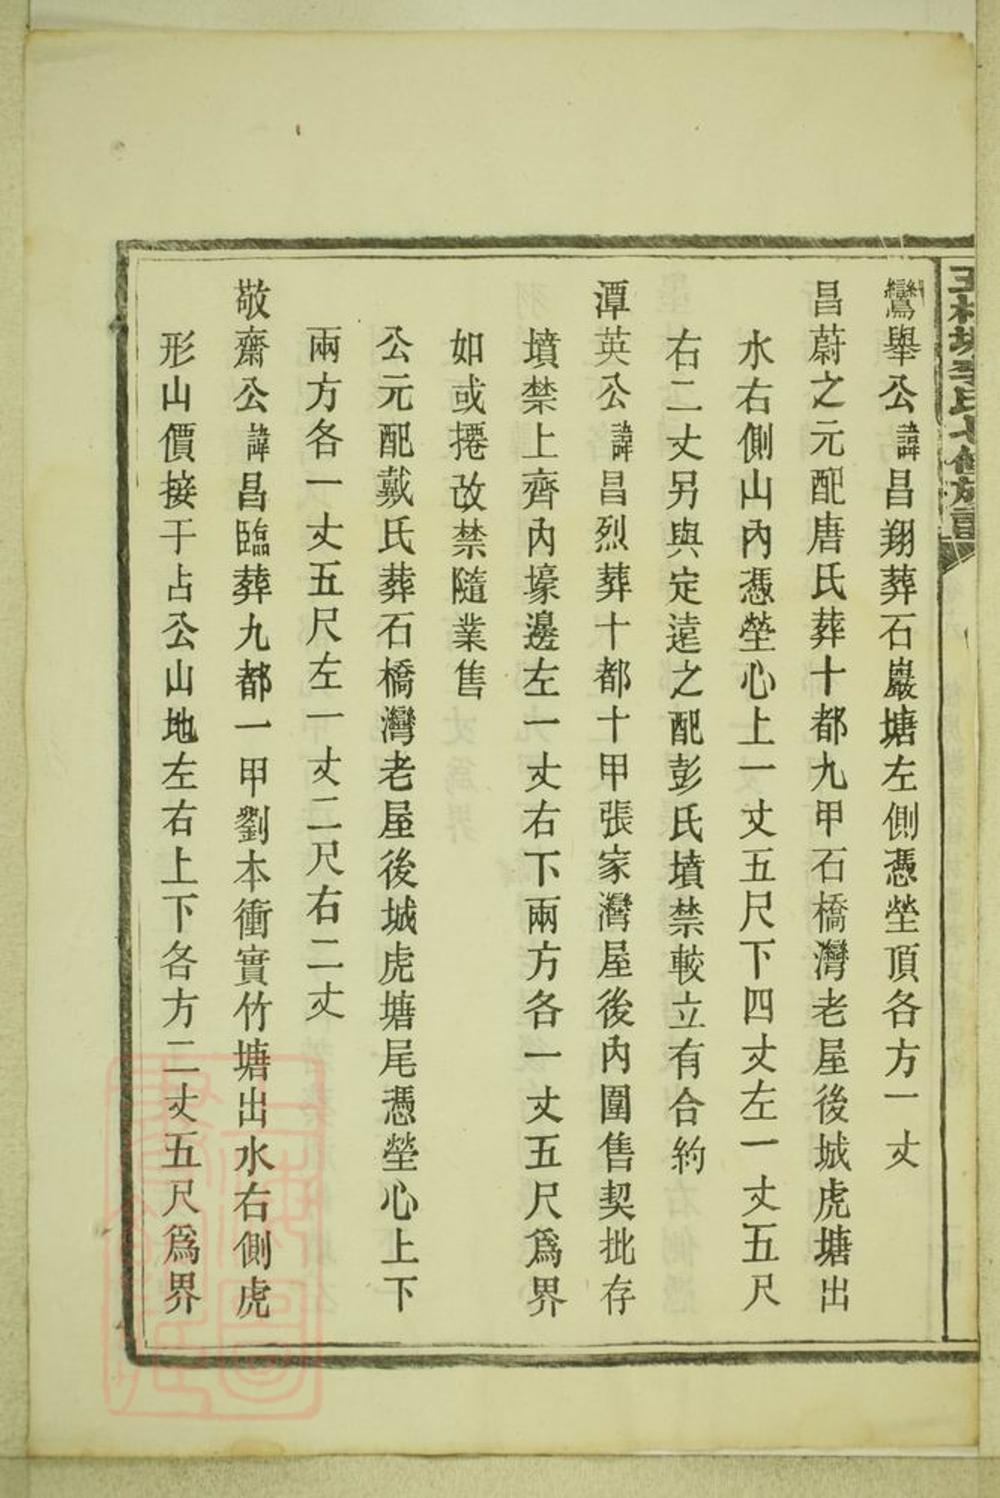 李氏七修族譜
鸞舉公諱昌翔葬石巖塘左側憑塋頂各方一丈
昌蔚之元配唐氏葬十都九甲石橋灣老屋後城虎塘出
水右側山內憑塋心上一丈五尺下四丈左一丈五尺
右二丈另與定遠之配彭氏墳禁較立有合約
潭英公諱昌烈葬十都十甲張家灣屋後內圍售契批存
墳禁上齊內壕邊左一丈右下兩方各一丈五尺爲界
如或捲改禁隨業售
公元配戴氏葬石橋灣老屋後城虎塘尾憑塋心上下
兩方各一丈五尺左一丈二尺右二丈
敬齋公諱昌臨葬九都一甲劉本衝實竹塘出水右側虎
形山價接于占公山地左右上下各方二丈五尺爲界